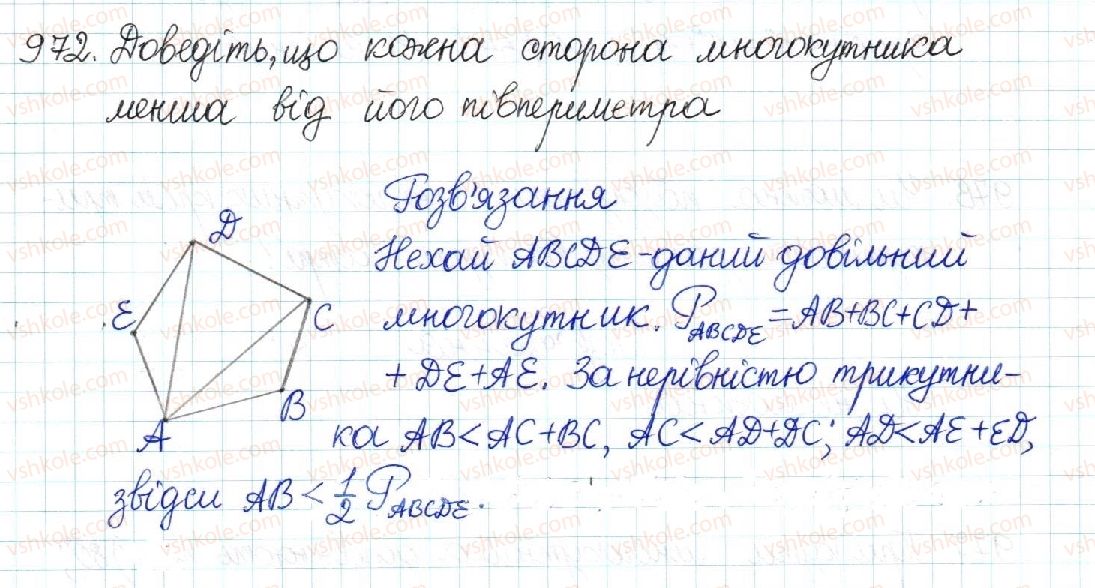 972. Доведіть, що кожна сторона многокутника
менша від його півпериметра
Розв'язання
Нехай ABCDE - даний довільний
многокутник. P_ABCDE = AB+BC+CD+
+ DE + AE. За нерівністю трикутни-
ка AB < AC + BC, AC < AD + DC; AD < AE + ED,
звідси AB < 1/2 P_ABCDE.
D
E
C
B
A
vshkole.com